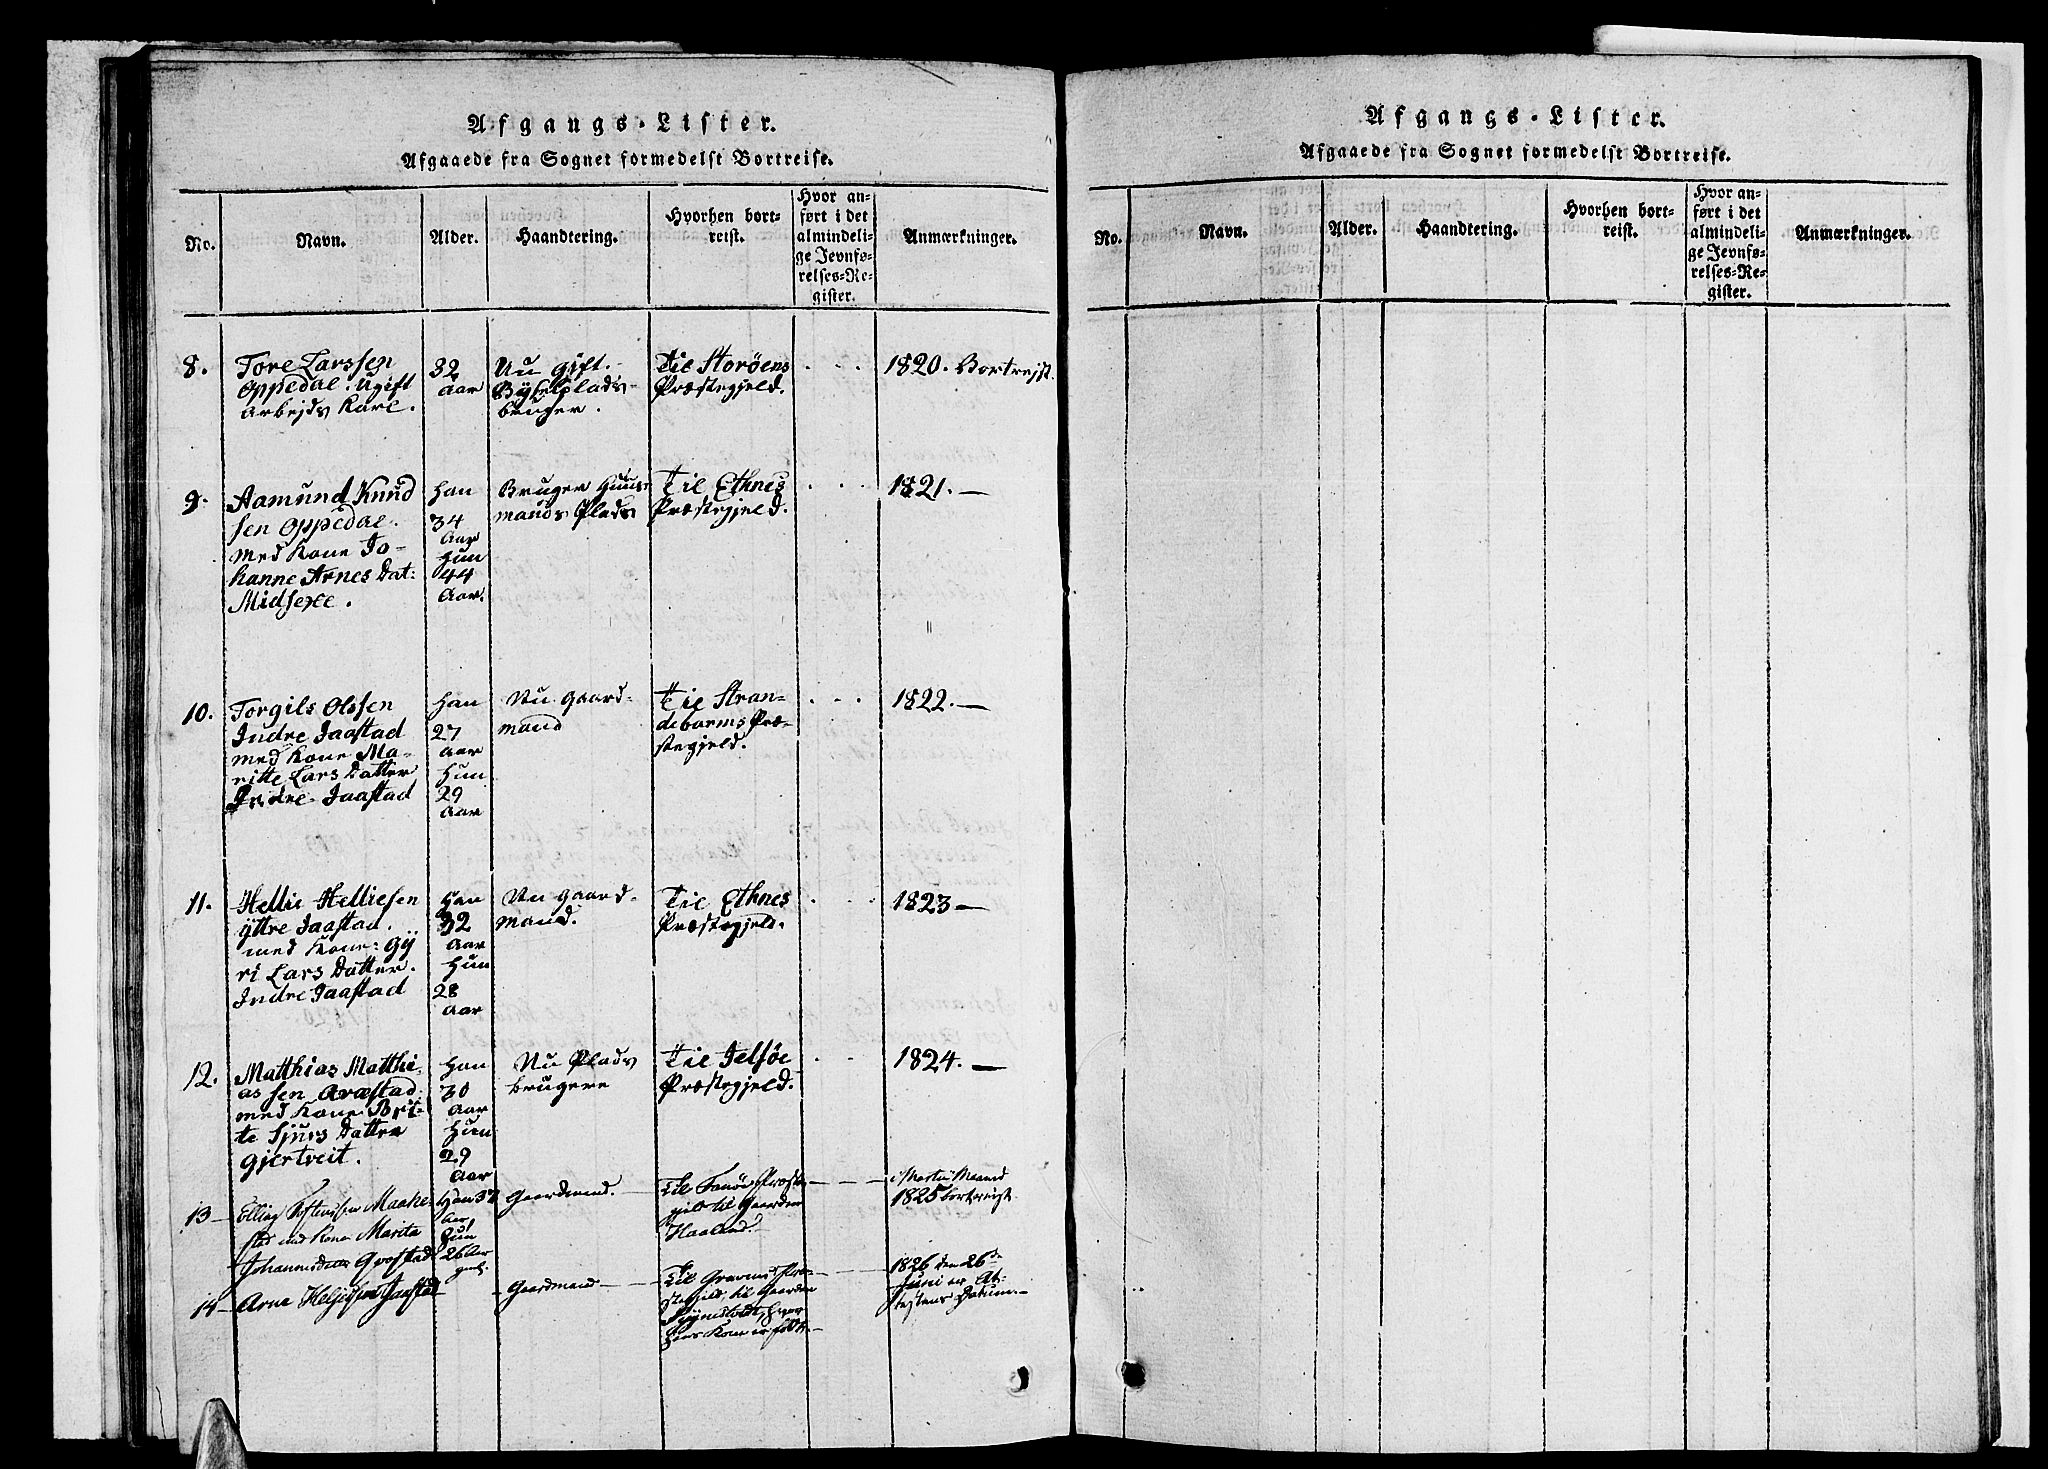 Afgangs-Lister.
Afgaaede fra Sognet formedelst Bortreise.
No.
Navn.
Alder.
Haandtering.
Hvorhen bort-
reist.
Hvor an-
ført i det
almindeli-
ge Jevnfø-
relses-Re-
gister.
Anmærkninger.
8.
Tore Larssen
Oppedal. Ugift
Arbejds Karl.
32
Aar
Nu gift.
brüger.
Til Storøens
Præstegjeld.
1820. Bortrejst.
9.
Aamund Knud
sen Oppedal.
med Kone Jo-
hanne Arnes Dat:
Midsexe.
Han
34
Aar
Hun
44
Aar.
Bruger Huus-
mands Plads
Til Ethnes
Præstegjeld.
1821. —
10.
Torgils Olssen
Indre Jaastad
med Kone Ma-
ritte Lars Datter
Indre Jaastad
Han
27
Aar
Hun
29
Aar
Nu Gaard-
mand
Til Stran-
debarms Præ-
stegjeld.
1822. —
11.
Hellie Helliesen
Yttre Jaastad.
med Kone Gÿ
ri Lars Datter.
Indre Jaastad
Han
32
Aar
Hun
28
Aar
Nu Gaard-
mand.
Til Ethnes
Præstegjeld.
1823 —
12.
Matthias Matthi-
as sen Aræstad
med Kone Bri-
te Sjurs Datter
Gjertveit.
Han
30
Aar
Hun
29
Aar
Nu Plads
brugere
Til Jelsøe
Præstegjeld.
1824. —
13 —
Elling Maake-
stad med Kone Marita
Han 37
Aar,
Hun
26 Aar
gml.
Gaardmand. —
Til Præste-
gjeld til Gaarden
Haaland. —
i Martii Maaned
1825 bortreist.
14 —
Arne Heljesen Jaastad —
— Gaardmand —
Til Gravens Præ-
stegjeld, til Gaarden
hvor
hans Kone er født. —
1826 den 26de
Juni er At-
testens Datum. —
Afgangs-Lister.
Afgaaede fra Sognet formedelst Bortreise.
No.
Navn.
Alder.
Haandtering.
Hvorhen bort-
reist.
Hvor an-
ført i det
almindeli-
ge Jevnfø-
relses-Re-
gister.
Anmærkninger.